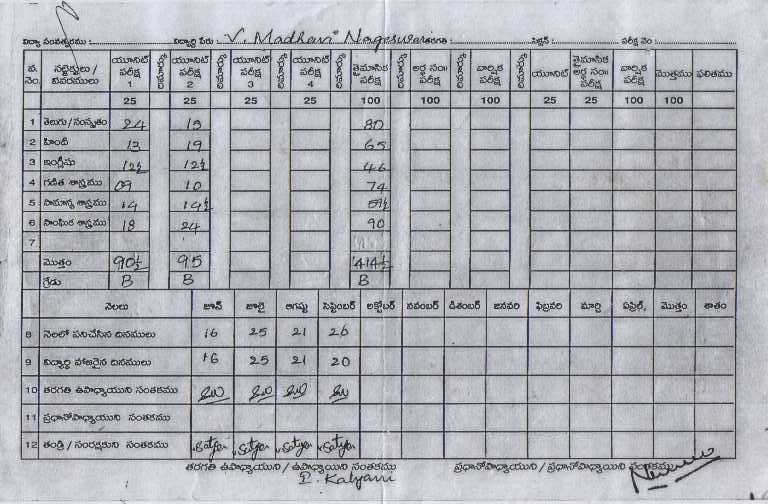 విద్యా సంవత్సరము : విద్యార్థి పేరు : V. Madhavi Nageswari తరగతి : సెక్షన్ : పరీక్ష నెం :
వ. నెం. సబ్జెక్టులు / వివరములు యూనిట్ పరీక్ష 1 యూనిట్ పరీక్ష 2 యూనిట్ పరీక్ష 3 యూనిట్ పరీక్ష 4 త్రైమాసిక పరీక్ష అర్థ సం॥ పరీక్ష వార్షిక పరీక్ష యూనిట్ త్రైమాసిక అర్థ సం॥ పరీక్ష వార్షిక పరీక్ష మొత్తము ఫలితము
25 25 25 25 100 100 100 25 25 100 100
1 తెలుగు / సంస్కృతం 24 15 80
2 హిందీ 13 19 65
3 ఇంగ్లీషు 12½ 12½ 46
4 గణిత శాస్త్రము 09 10 74
5 సామాన్య శాస్త్రము 14 14½
6 సాంఘిక శాస్త్రము 18 24 90
7
మొత్తం 90½ 95 414½
గ్రేడు B B B
నెలలు జూన్ జూలై ఆగష్టు సెప్టెంబర్ అక్టోబర్ నవంబర్ డిశంబర్ జనవరి ఫిబ్రవరి మార్చి ఏప్రిల్, మొత్తం శాతం
8 నెలలో పనిచేసిన దినములు 16 25 21 26
9 విద్యార్థి హాజరైన దినములు 16 25 21 20
10 తరగతి ఉపాధ్యాయుని సంతకము
11 ప్రధానోపాధ్యాయుని సంతకము
12 తండ్రి / సంరక్షకుని సంతకము Satya Satya Satya Satya
తరగతి ఉపాధ్యాయుని / ఉపాధ్యాయిని సంతకము ప్రధానోపాధ్యాయుని / ప్రధానోపాధ్యాయిని సంతకము
D. Kalyani